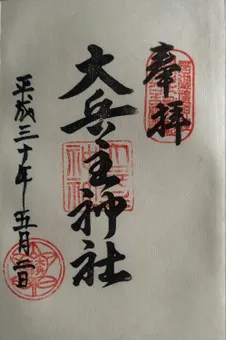 奉拝
大兵主神社
平成三十年五月二日